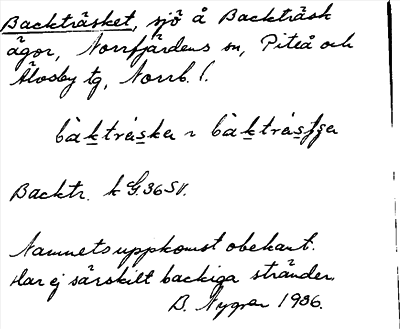 Backträsket, sjö å Backträsk
ägor, Norrfjärdens sn, Piteå och
Älvsby tg, Norrb. l.
bàktráskₑ
Backtr. k G. 36 SV.
Namnets uppkomst obekant.
Har ej särskilt backiga stränder.
B. Nygren 1936.